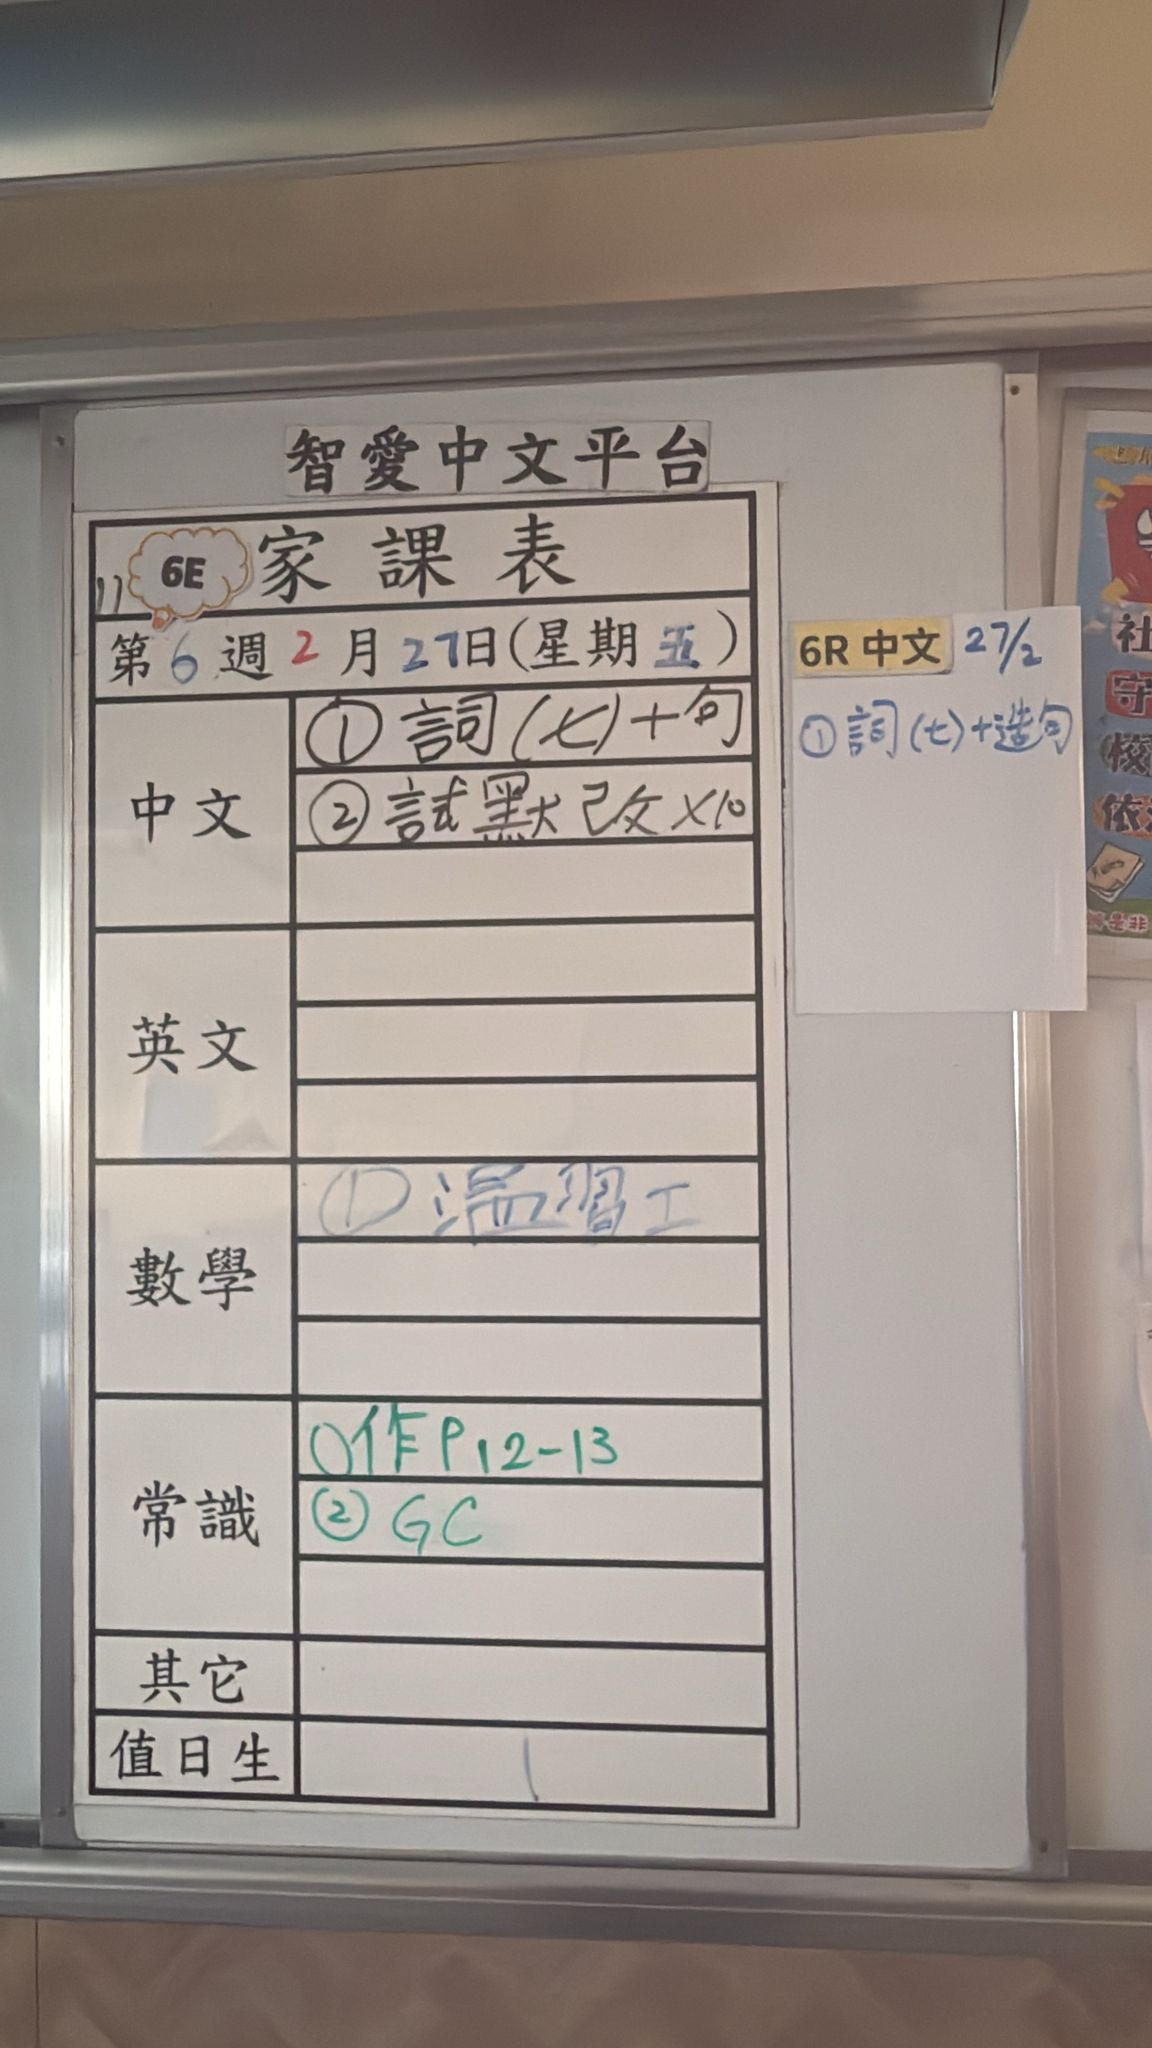 智愛中文平台
6E 家課表
第6週2月27日(星期五)
中文
① 詞(七)+句
② 試默改×10
英文
數學
① 溫習工
常識
①作P.12-13
② GC
其它
值日生
6R 中文 27/2
① 詞(七)+造句
社
守
校
依